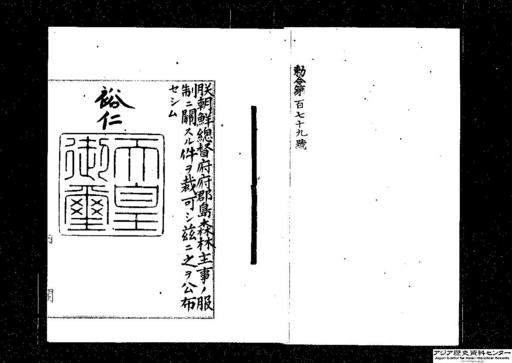 勅令第百七十九號
朕朝鮮總督府府郡島森林主事ノ服
制ニ關スル件ヲ裁可シ茲ニ之ヲ公布
セシム
裕仁
天皇
御璽
内閣
アジア歴史資料センター
Japan Center for Asian Historical Records